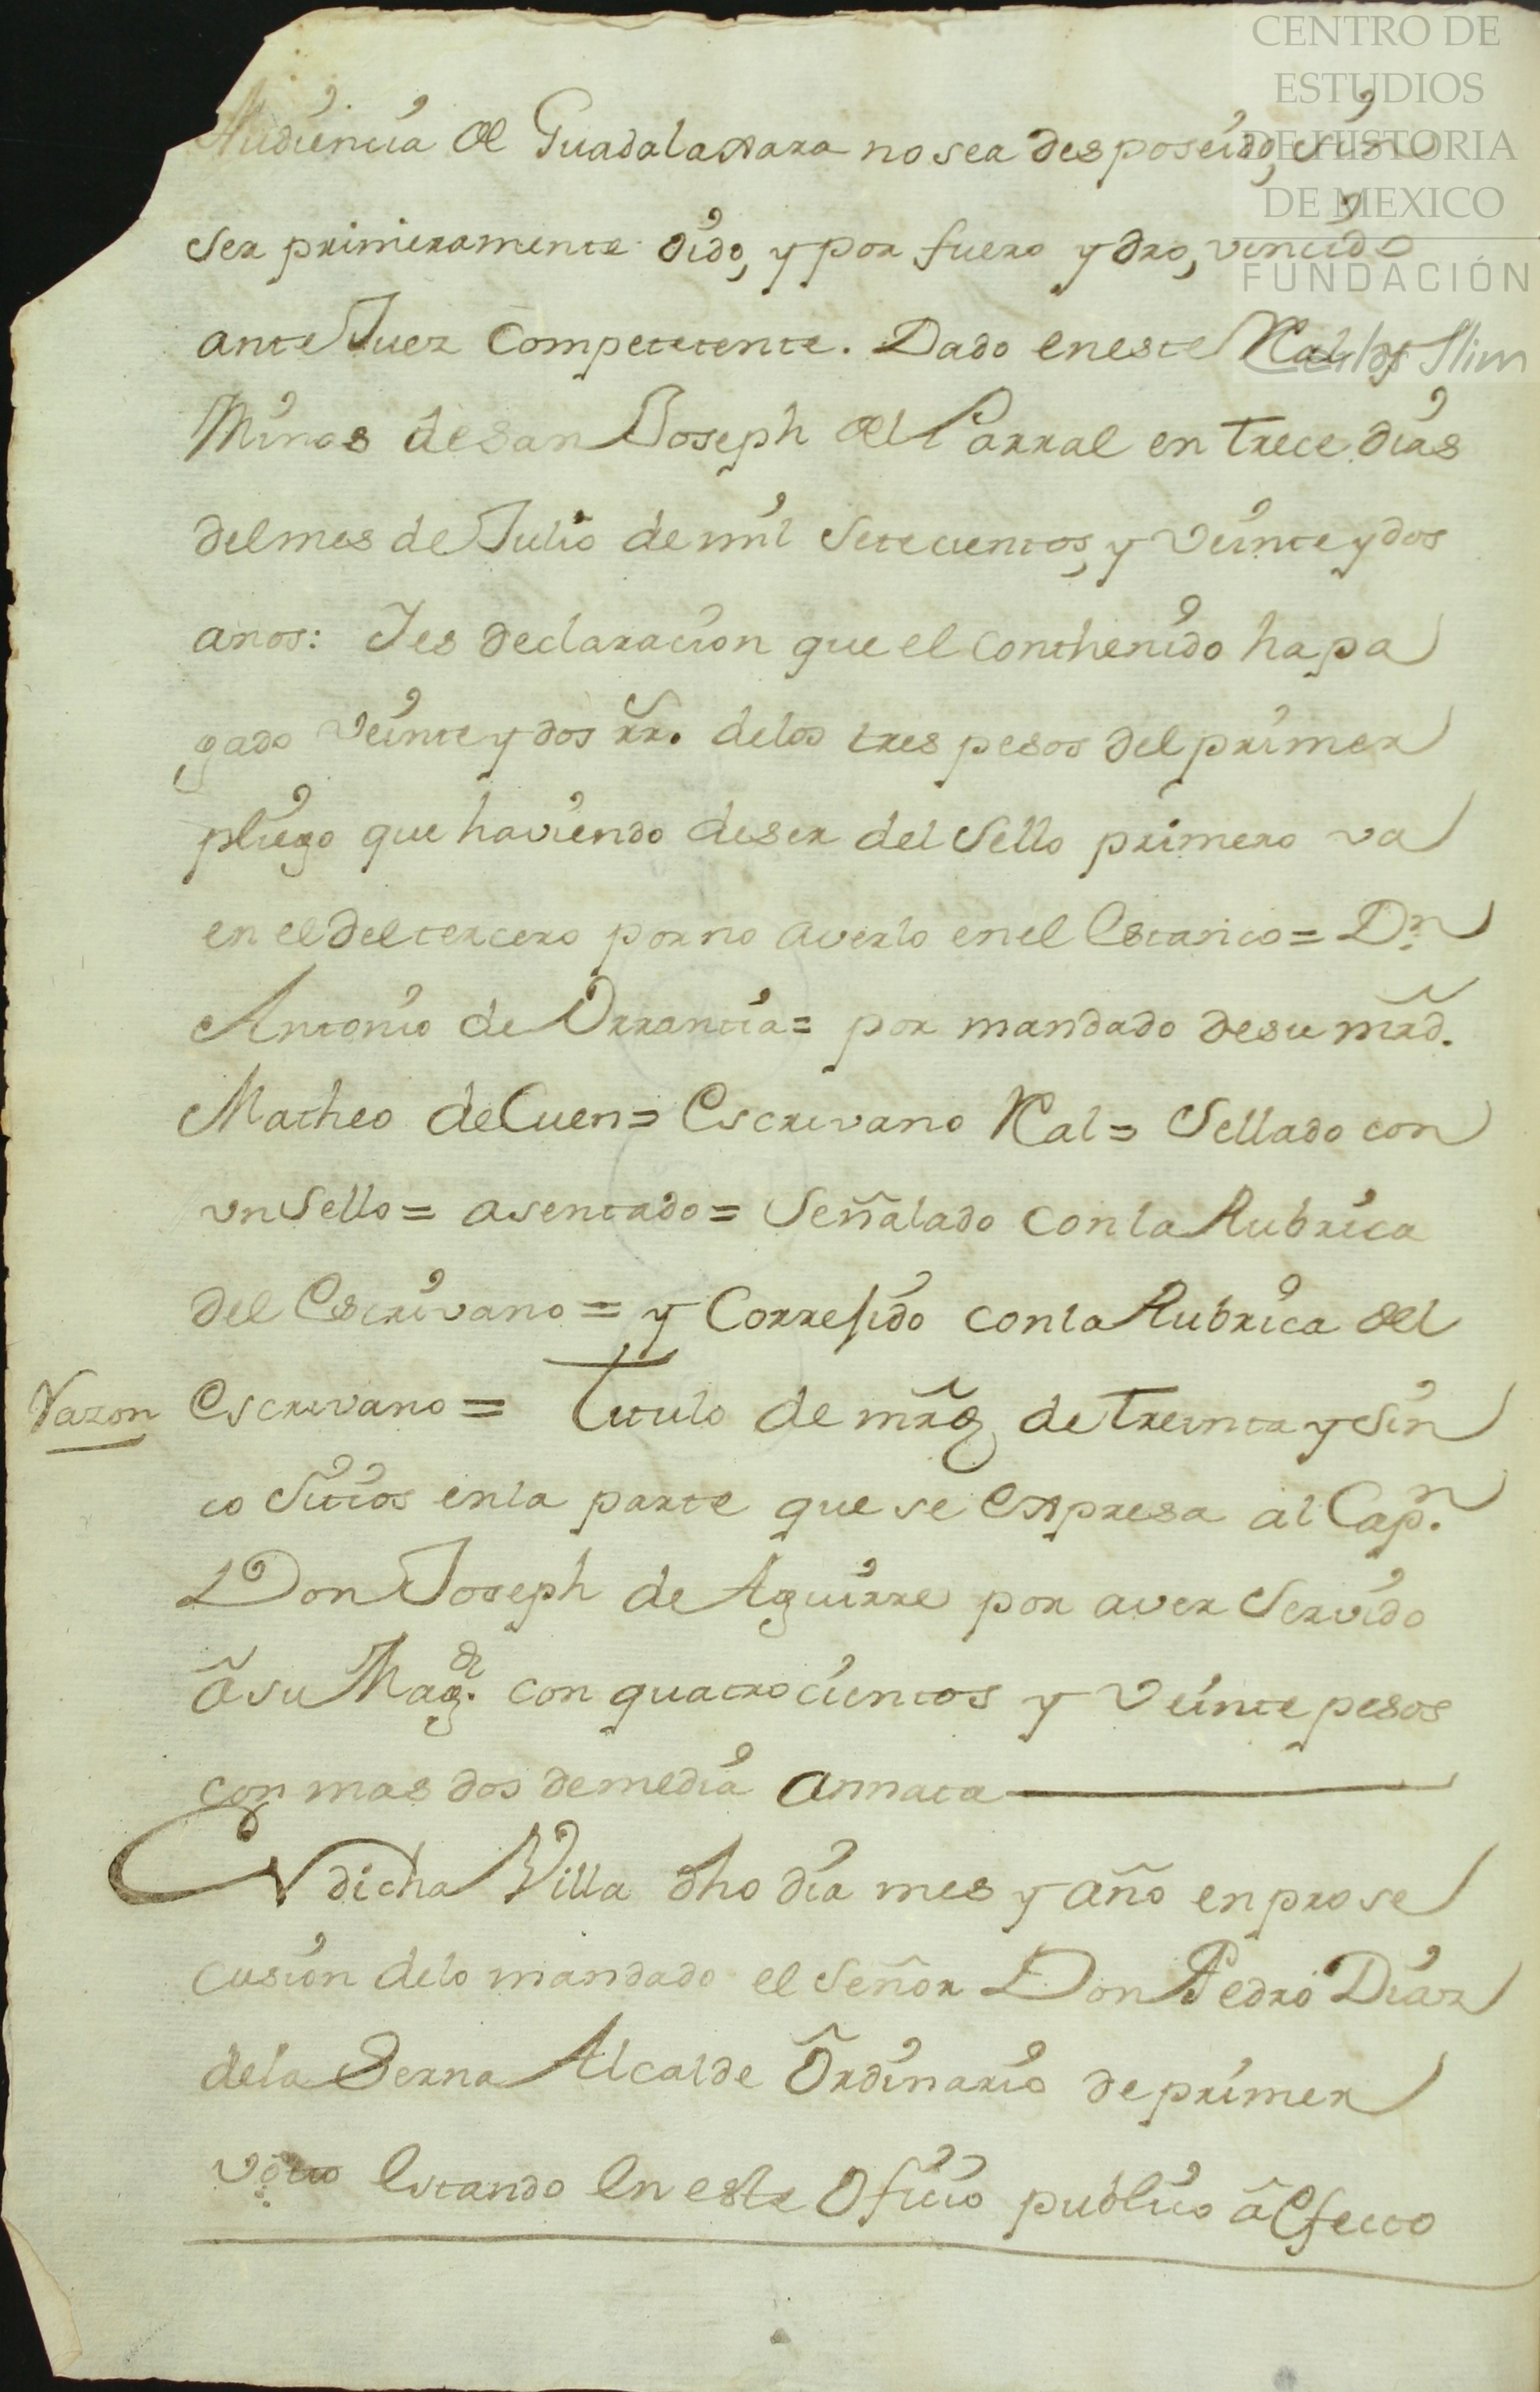 CENTRO DE
ESTUDIOS
DE HISTORIA
DE MEXICO
FUNDACIÓN
Carlos Slim
Audiencia de Guadalaxara no sea desposeido, sin
ser primieramente oido, y por fuero y dro, vencido
ante Juez Competetente. Dado en este Ral de
Minas de San Joseph del Parral en trece dias
del mes de Julio de mil setecientos, y veinte y dos
anos: Y es declaracion que el conthenido ha pa
gado veinte y dos rr. de los tres pesos del primer
pliego que haviendo de ser del Sello primero va
en el del tercero por no averlo en el Estanco = Dn.
Antonio de Orrantia = por mandado de su mrd.
Matheo de Cuen = Escrivano Ral = Sellado con
vn Sello = asentado = Señalado con la Rubrica
del Escrivano = y Corregido con la Rubrica del
Razon
Escrivano = Titulo de mrd de treinta y sin
co sitios en la parte que se expresa al Capn.
Don Joseph de Aguirre por aver servido
â su Magd. con quatrocientos y veinte pesos
con mas dos de media annata
En dicha Villa dho dia mes y año en prose
cusion de lo mandado el señor Don Pedro Diaz
de la Serna Alcalde Ordinario de primer
voto estando en este Oficio publico â efecto